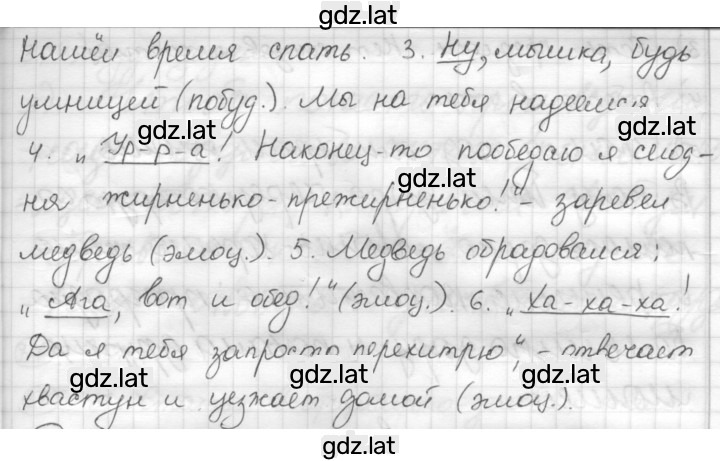 gdz.lat
нашёл время спать. 3. Ну, мышка, будь
умницей (побуд.). Мы на тебя надеемся
gdz.lat
gdz.lat
4. „Ур-р-а! Наконец-то пообедаю я сегод-
gdz.lat
ня жирненько-прежирненько!" - заревел
медведь (эмоц.). 5. Медведь обрадовался:
„Ага, вот и обед!" (эмоц.). 6. „Ха-ха-ха!
gdz.lat
Да я тебя запросто перехитрю", - отвечает
gdz.lat
gdz.lat
хвастун и уезжает домой (эмоц.).
gdz.lat